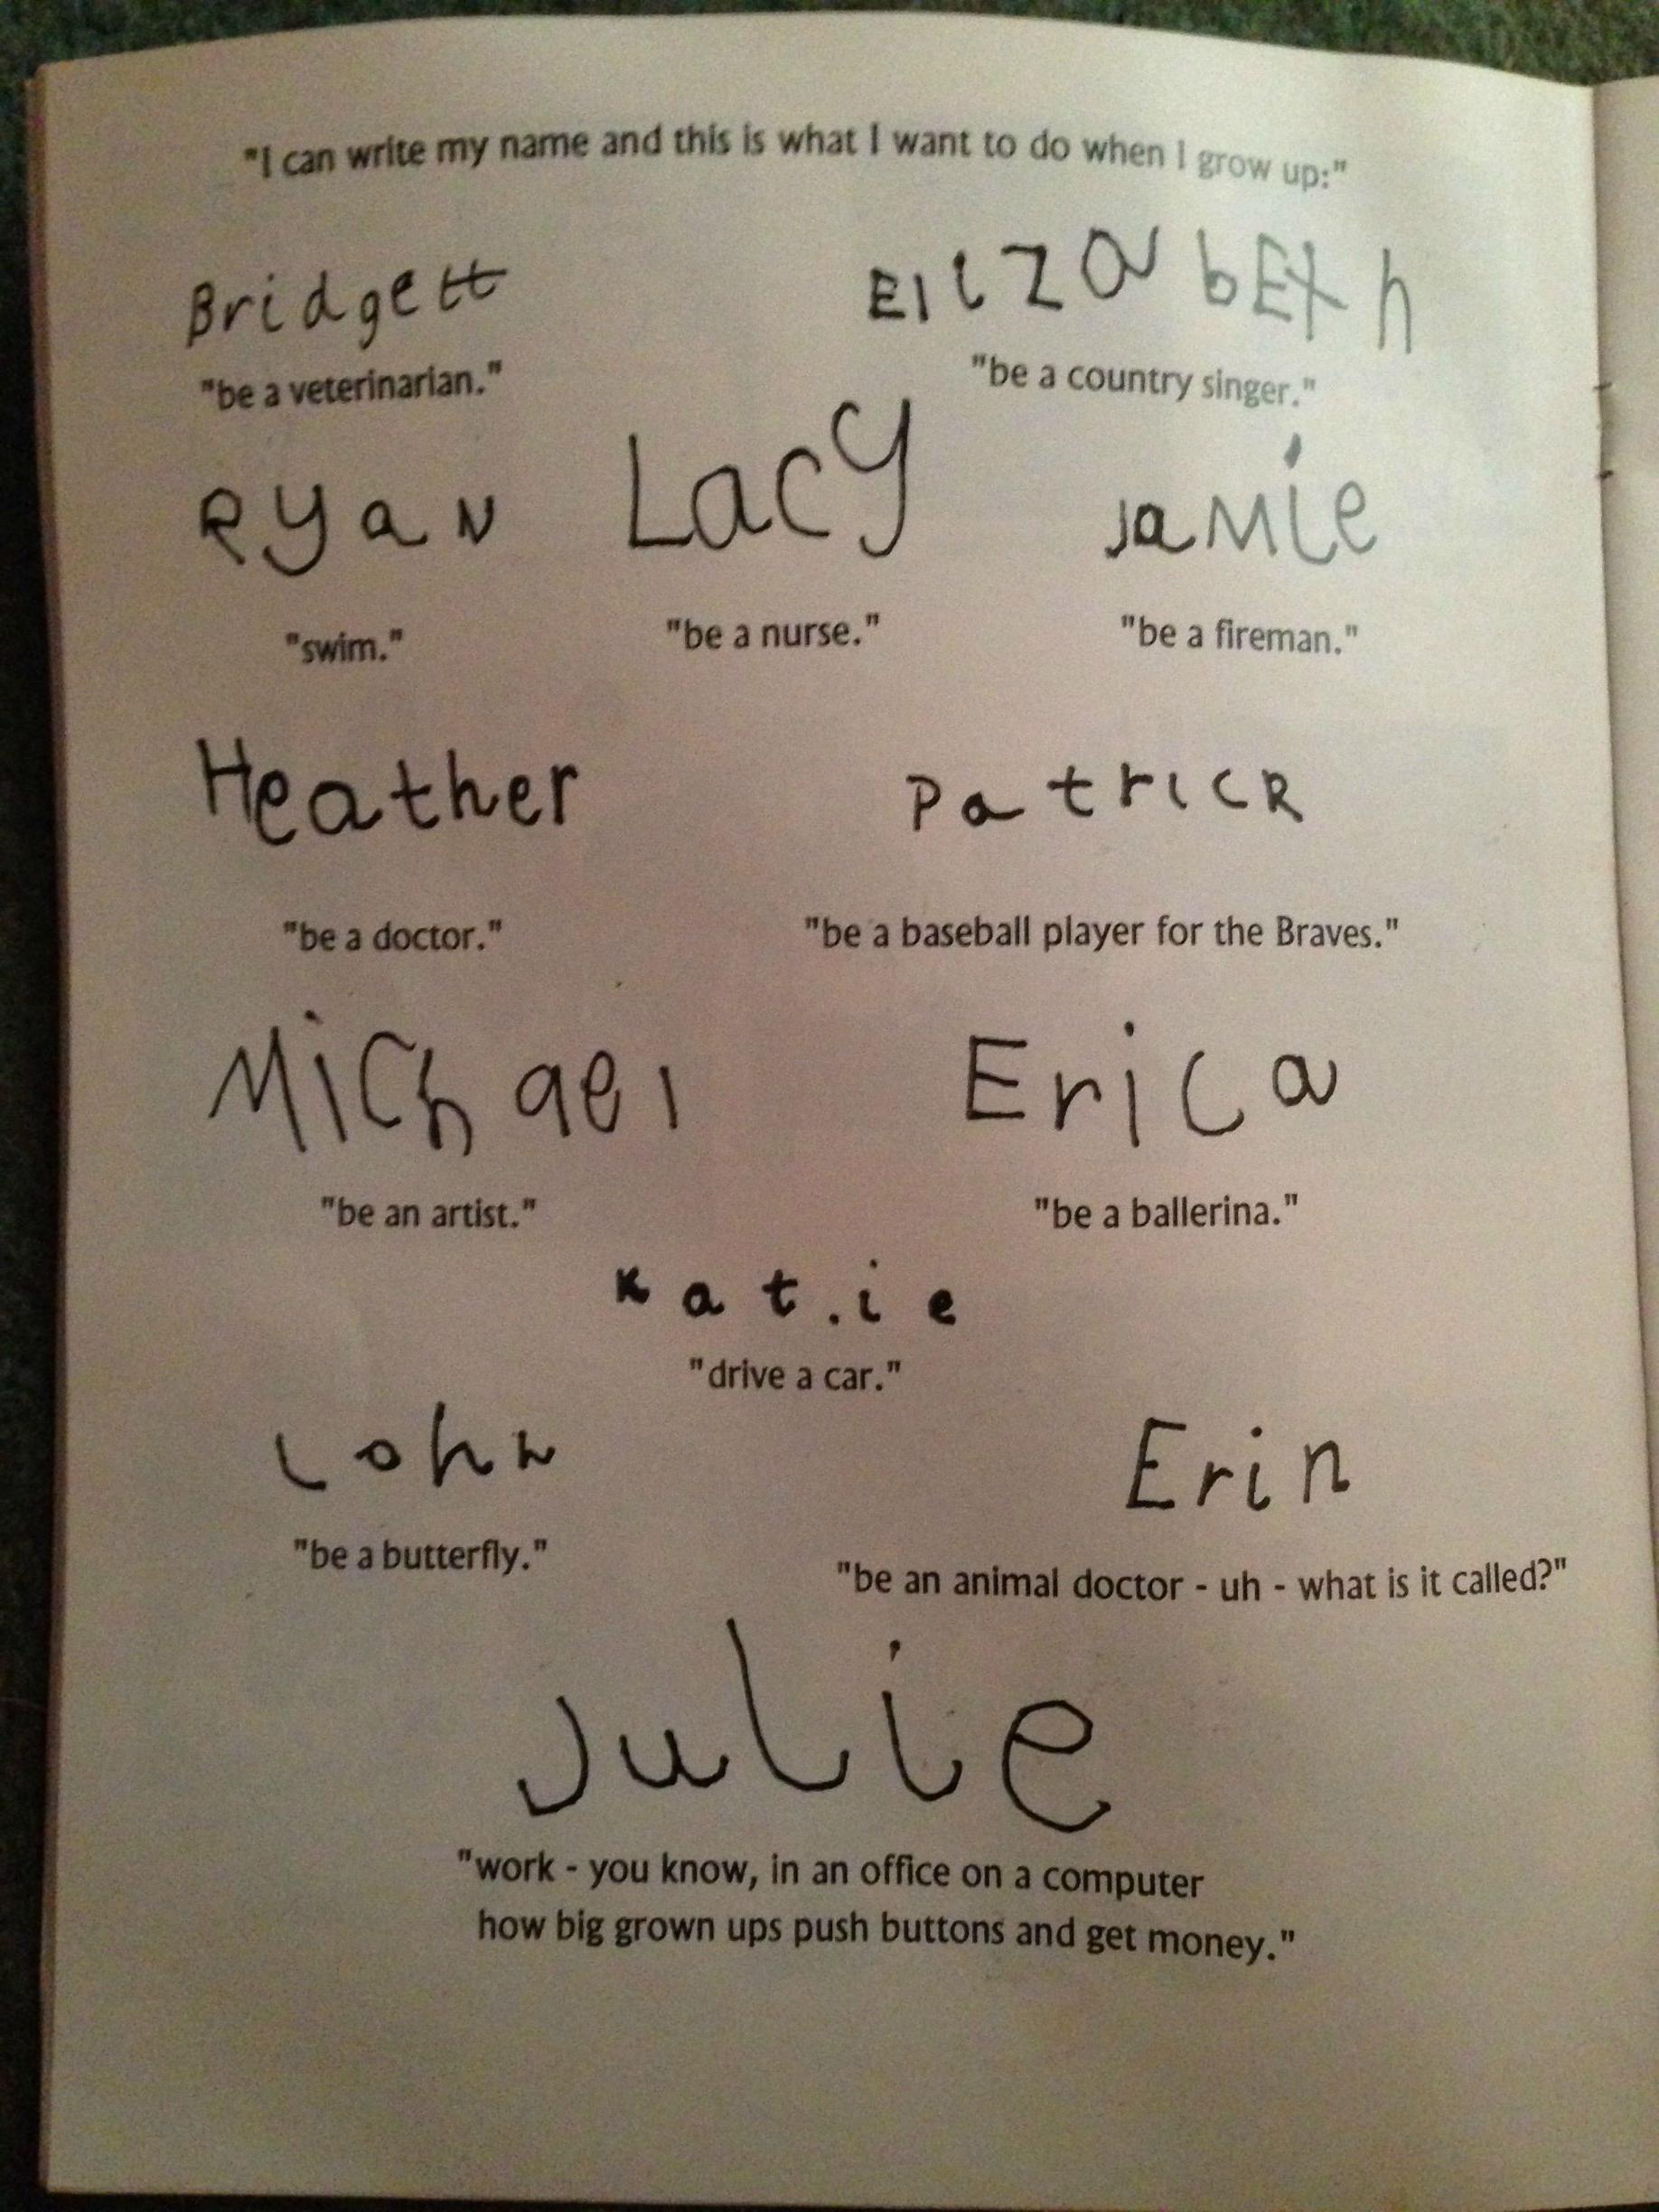 "I can write my name and this is what I want to do when I grow up:"
Bridgett
"be a veterinarian."
ElizabEth
"be a country singer."
Ryan
"swim."
Lacy
"be a nurse."
Jamie
"be a fireman."
Heather
"be a doctor."
Patrick
"be a baseball player for the Braves."
Michael
"be an artist."
Erica
"be a ballerina."
Kat.ie
"drive a car."
John
"be a butterfly."
Erin
"be an animal doctor - uh - what is it called?"
Julie
"work - you know, in an office on a computer
how big grown ups push buttons and get money."